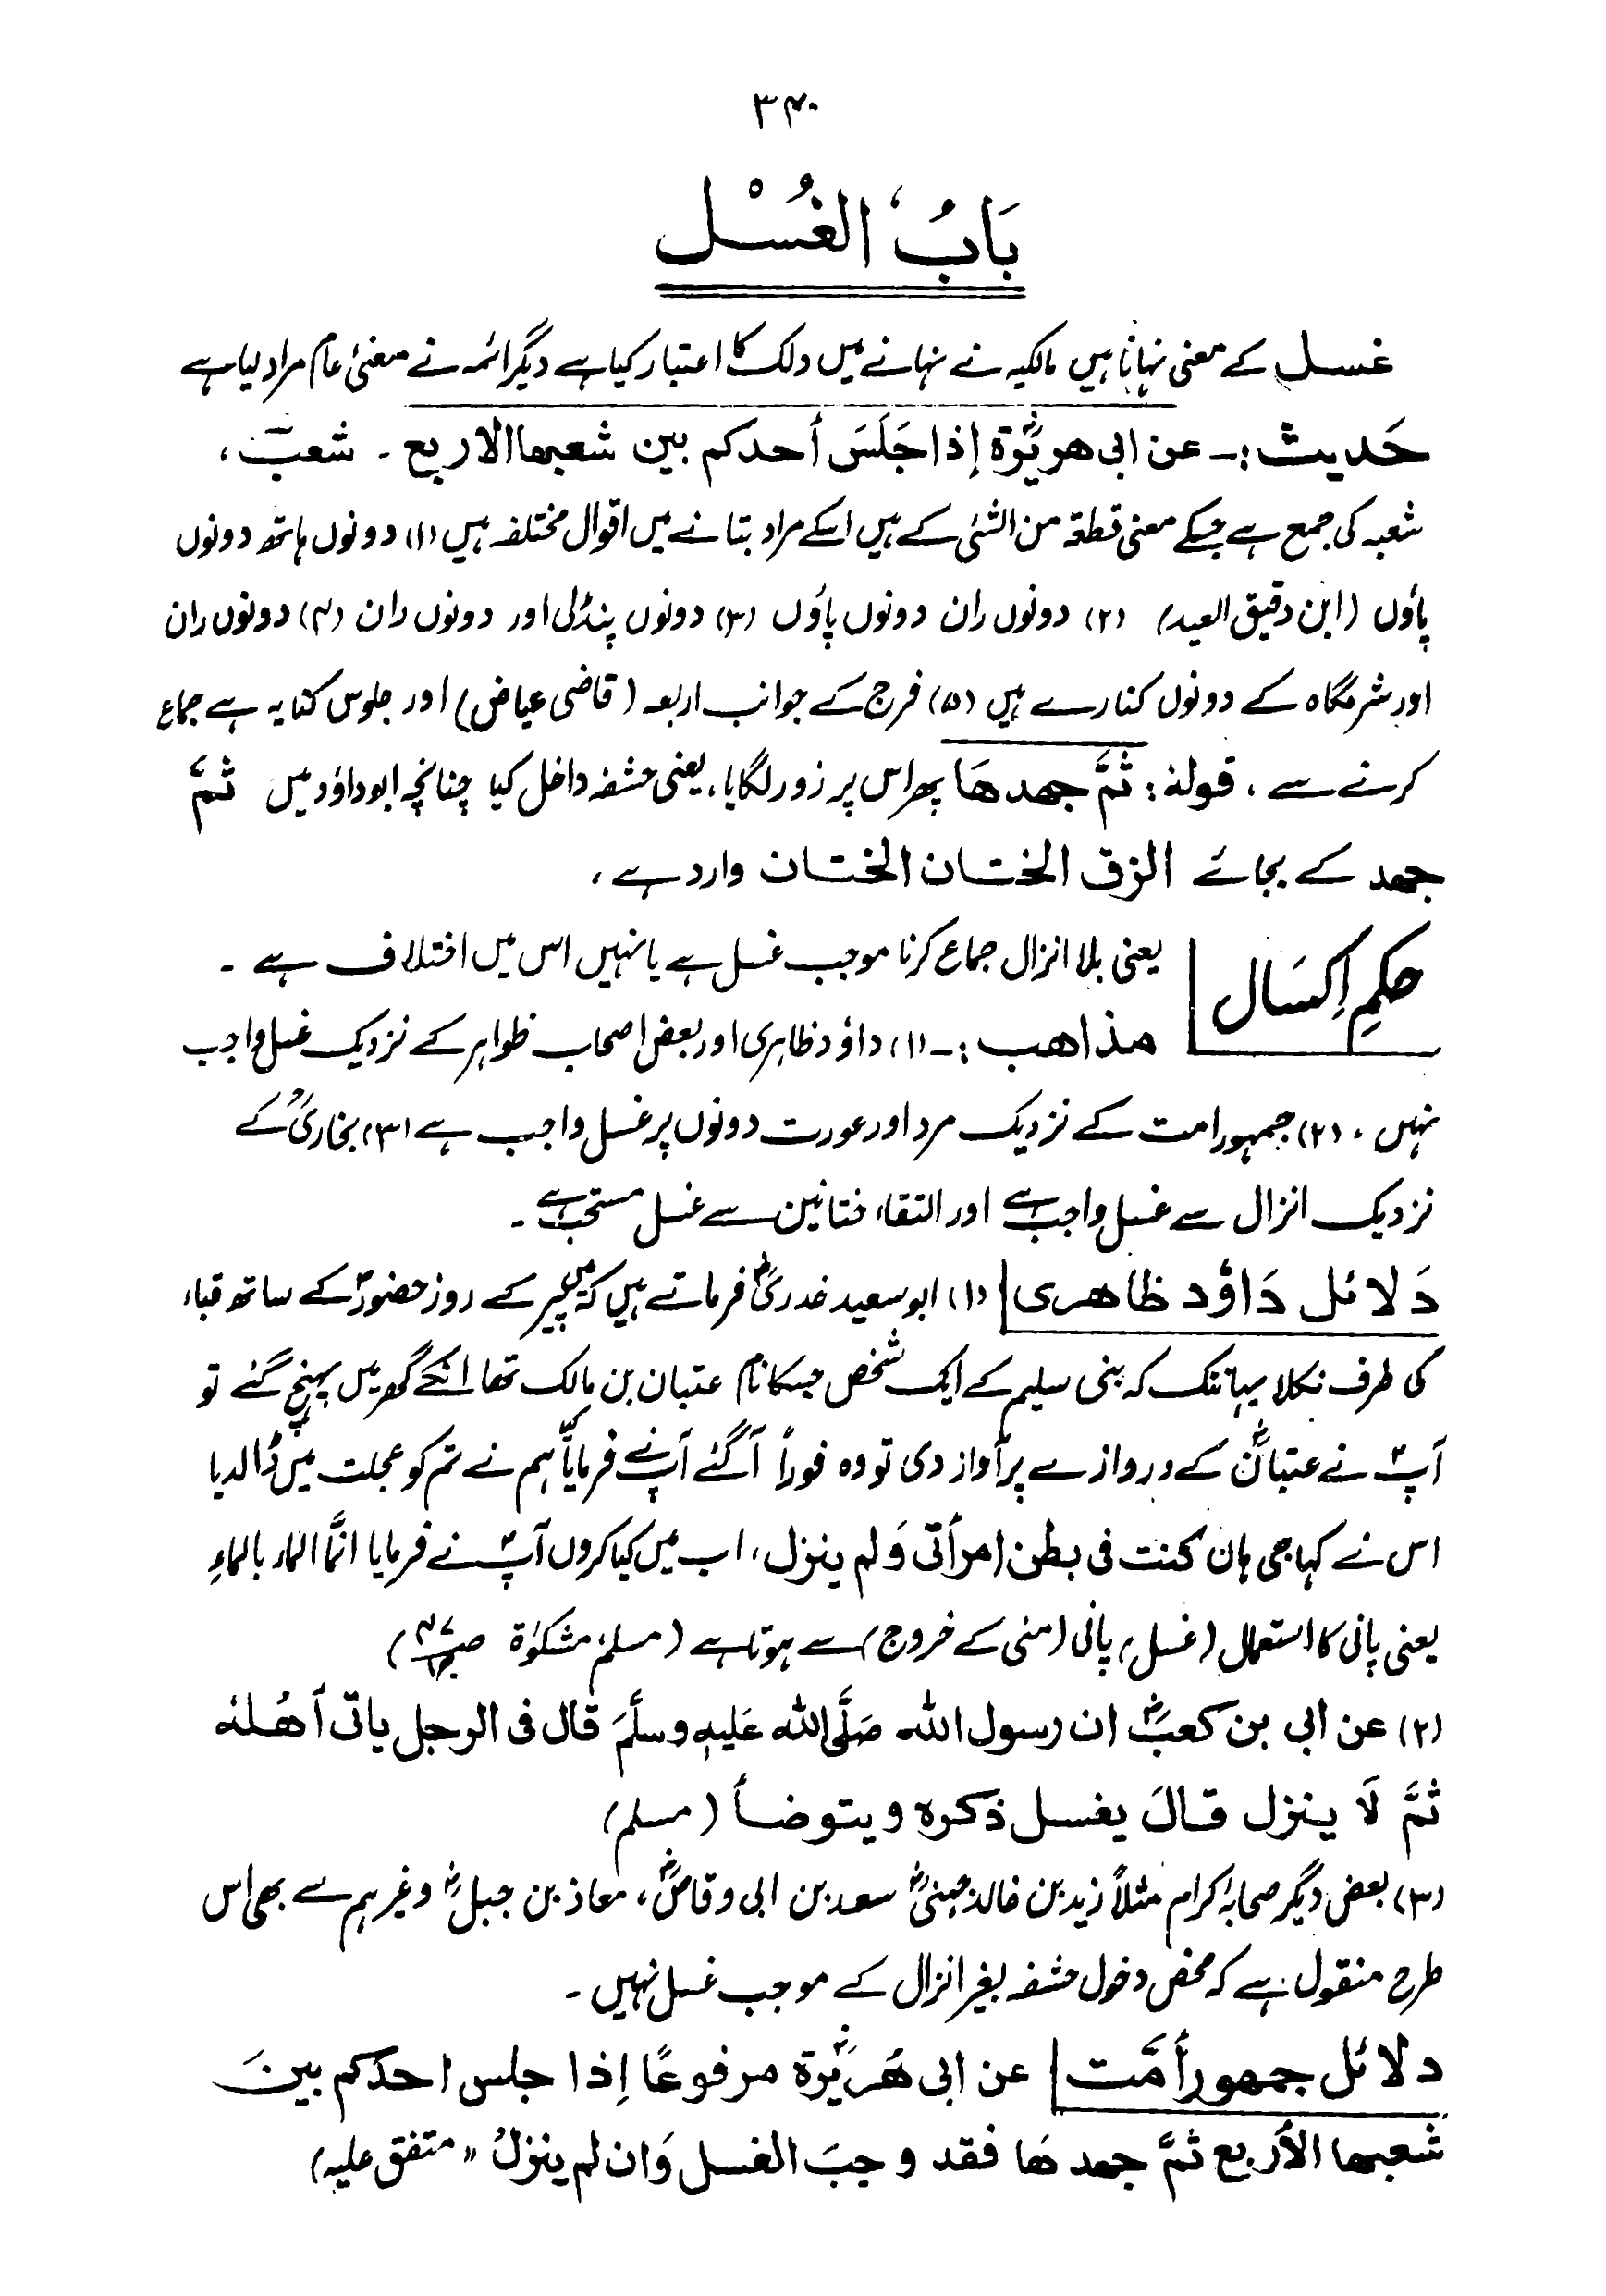 ۳۴۰
بَابُ الغُسْل
غسل کے معنی نہانا ہیں مالکیہ نے نہانے میں دلک کا اعتبار کیا ہے دیگر ائمہ نے معنیٔ عام مراد لیا ہے
حَدیث :۔ عن ابی ھریرؓۃ إذا جَلَسَ أحدکم بین شعبھا الاربع ۔ شعبؔ ،
شعبہ کی جمع ہے جسکے معنی قطعۃ من الشئی کے ہیں اسکے مراد بتانے میں اقوال مختلفہ ہیں (۱) دونوں ہاتھ دونوں
پاؤں (ابن دقیق العید) (۲) دونوں ران دونوں پاؤں (۳) دونوں پنڈلی اور دونوں ران (۴) دونوں ران
اور شرمگاہ کے دونوں کنارے ہیں (۵) فرج کے جوانب اربعہ (قاضی عیاض) اور جلوس کنایہ ہے جماع
کرنے سے ، قولہٗ : ثُمَّ جھدھَا پھر اس پر زور لگایا ، یعنی حشفہ داخل کیا چنانچہ ابوداؤد میں ثمَّ
جھد کے بجائے الزق الختان الختان وارد ہے ،
حکمِ اِکسَال
یعنی بلا انزال جماع کرنا موجب غسل ہے یا نہیں اس میں اختلاف ہے ۔
مذاھب :۔ (۱) داؤد ظاہری اور بعض اصحاب ظواہر کے نزدیک غسل واجب
نہیں ، (۲) جمہور امت کے نزدیک مرد اور عورت دونوں پر غسل واجب ہے (۳) بخاریؒ کے
نزدیک انزال سے غسل واجب ہے اور التقاء ختانین سے غسل مستحب ہے ۔
دَلائل دَاؤد ظاھری (۱) ابو سعید خدریؓ فرماتے ہیں کہ میں پیر کے روز حضورؐ کے ساتھ قباء
کی طرف نکلا یہانتک کہ بنی سلیم کے ایک شخص جسکا نام عتبان بن مالک تھا انکے گھر میں پہنچ گئے تو
آپؐ نے عتبانؓ کے دروازے پر آواز دی تو وہ فوراً آگئے آپؐ نے فرمایا ہم نے تم کو عجلت میں ڈالدیا
اس نے کہا جی ہاں کنت فی بطن امرأتی وَلم ینزل ، اب میں کیا کروں آپؐ نے فرمایا انمَّا الماء بالماءِ
یعنی پانی کا استعمال (غسل) پانی (منی کے خروج) سے ہوتا ہے (مسلم، مشکوٰۃ صـ۴۷)
(۲) عن ابی بن کعبؓ ان رسول اللہ صَلَّی اللہ عَلیہِ وسلَّمَ قال فی الرجل یاتی أھُلہٗ
ثمَّ لَا ینزل قالَ یغسل ذکرہ ویتوضأ (مسلم)
(۳) بعض دیگر صحابۂ کرام مثلاً زید بن خالد جہنیؓ سعد بن ابی وقاصؓ ، معاذ بن جبلؓ وغیرہم سے بھی اس
طرح منقول ہے کہ محض دخول حشفہ بغیر انزال کے موجب غسل نہیں ۔
دلائل جمھور أمَّت عن ابی ھُریرؓۃ مرفوعًا اِذا جلس احدکم بینَ
شعبھا الأربع ثمَّ جھدھَا فقد وجبَ الغسل وَان لم ینزلُ (متفق علیہ)